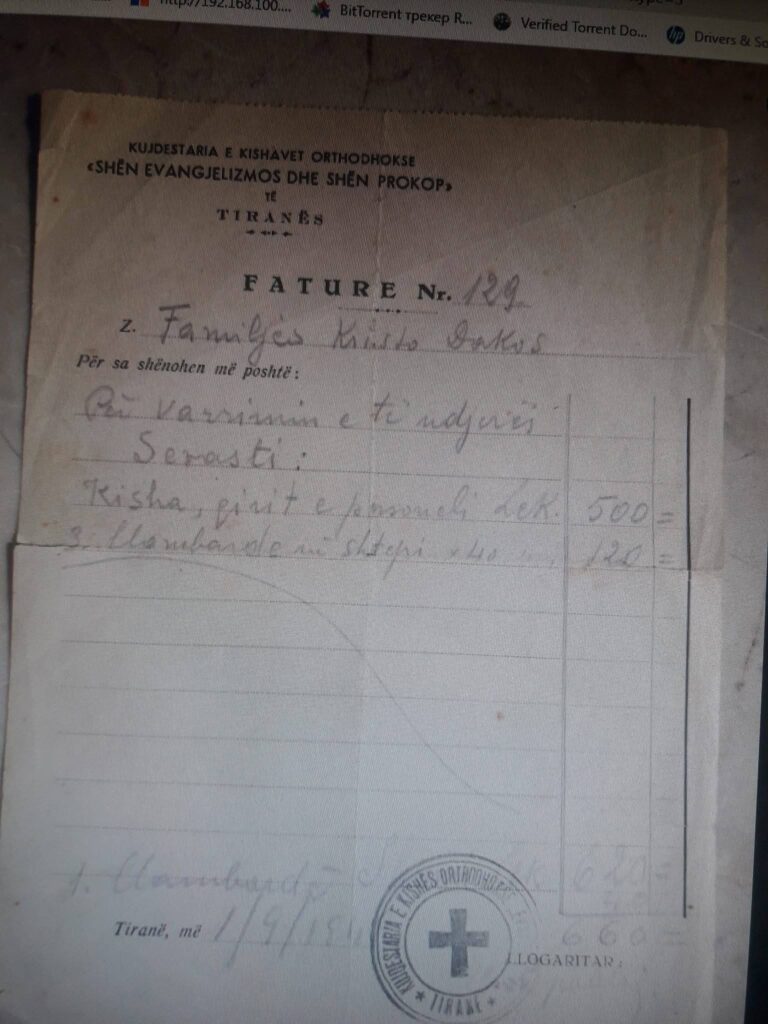 BitTorrent трекер R...
Verified Torrent Do...
Drivers & So
KUJDESTARIA E KISHAVET ORTHODHOKSE
«SHËN EVANGJELIZMOS DHE SHËN PROKOP»
TË
TIRANËS
FATURE Nr. 129
Z. Familjës Kristo Dakos
Për sa shënohen më poshtë:
Për varrimin e të ndjerës
Sevasti:
Kisha, e Lek. 500=
3. në shtëpi 120=
620=
1.
40
660=
Tiranë, më 1/9/19
LLOGARITAR:
KUJDESTARIA E KISHËS ORTHODHOKSE
* TIRANË *